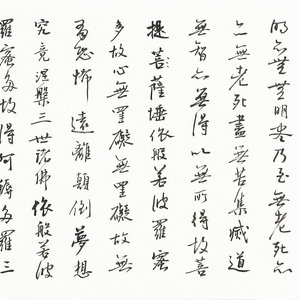 明亦無無明盡乃至無老死
亦無老死盡無苦集滅道
無智亦無得以無所得故菩
提菩薩埵依般若波羅蜜
多故心無罣礙無罣礙故無
有恐怖遠離顛倒夢想
究竟涅槃三世諸佛依般若波
羅蜜多故得阿耨多羅三